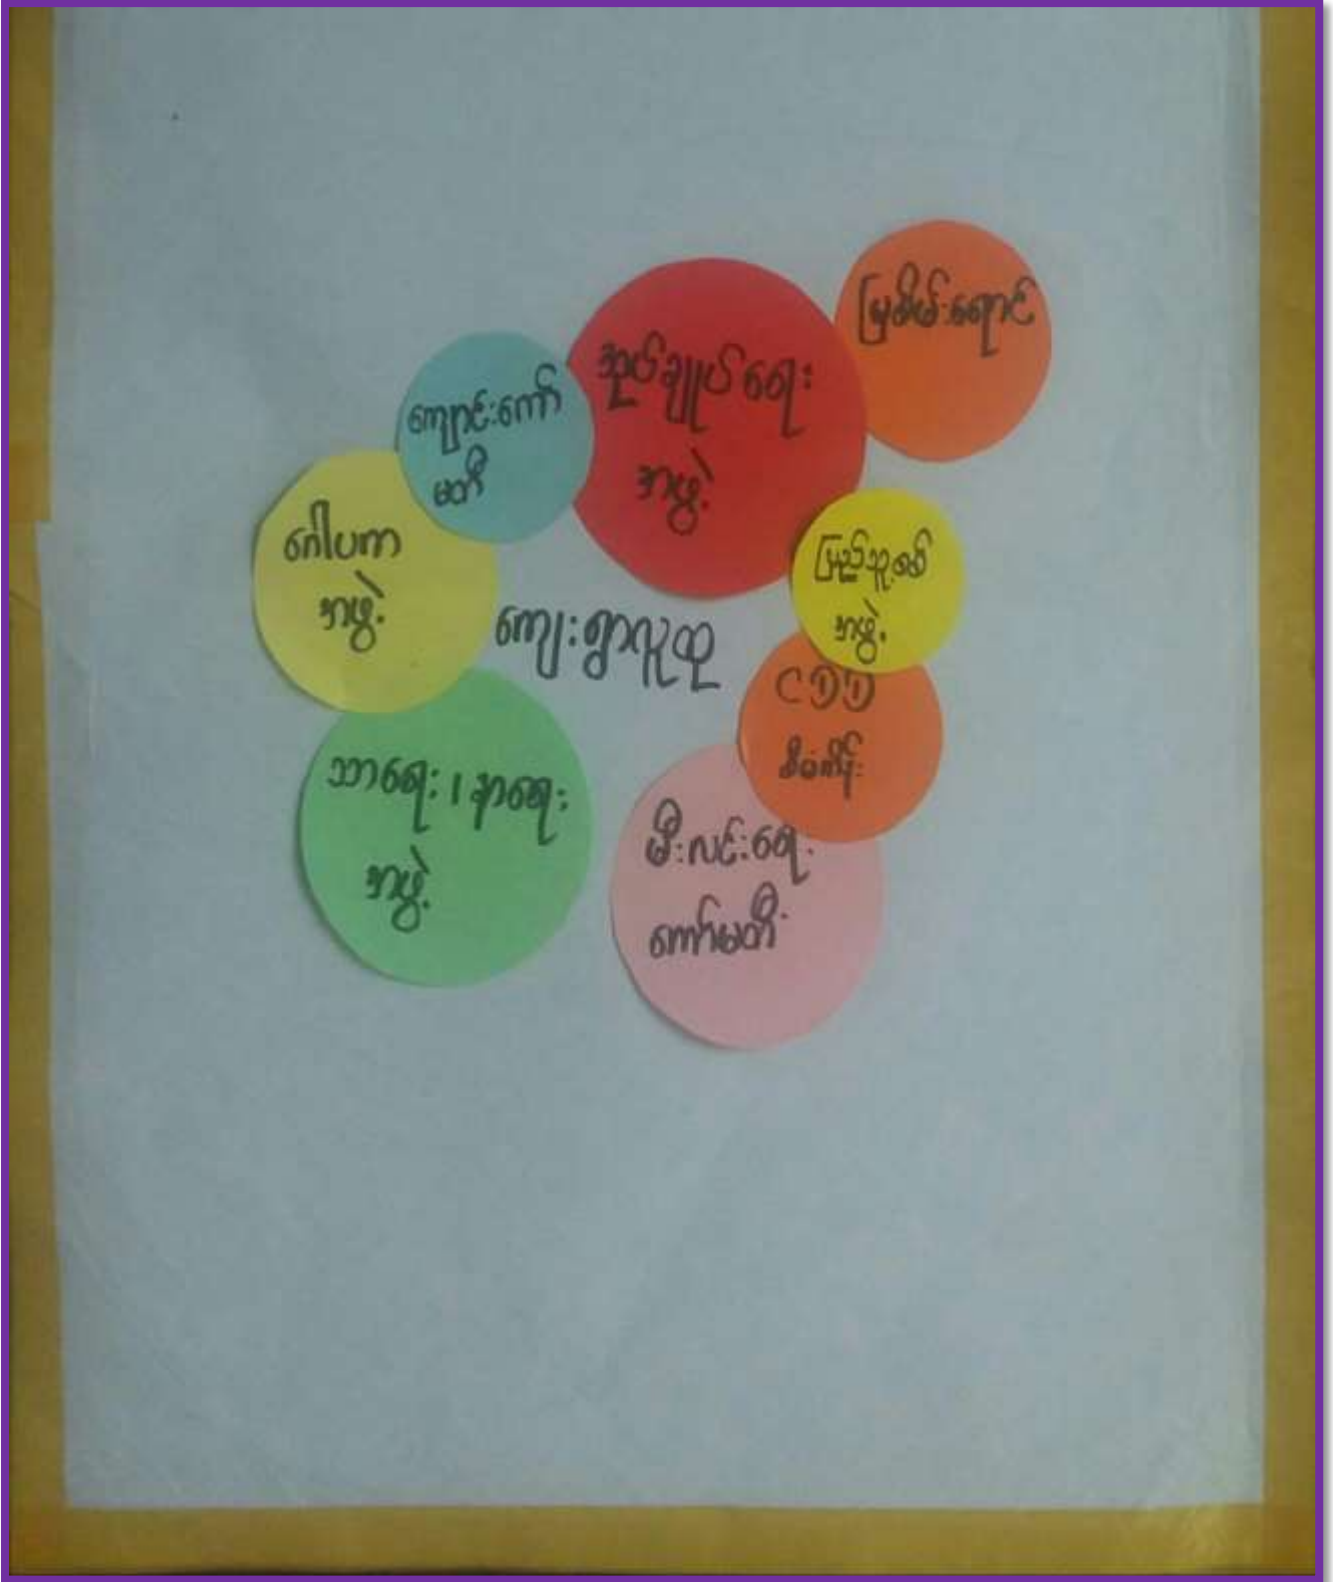 မြစိမ်းရောင်
အုပ်ချုပ်ရေး
အဖွဲ့
ကျောင်းကော်
မတီ
ဂေါပက
အဖွဲ့
ပြည်သူ့စစ်
အဖွဲ့
ကျေးရွာလူထု
CDD
စီမံကိန်း
သာရေး၊နာရေး
အဖွဲ့
မီးလင်းရေး
ကော်မတီ